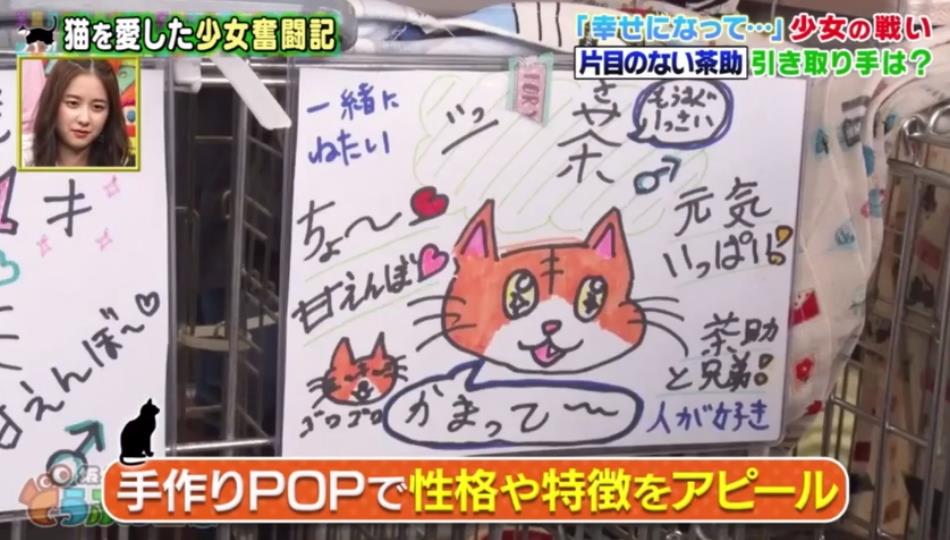 猫を愛した少女奮闘記
「幸せになって…」少女の戦い
片目のない茶助 引き取り手は?
一緒に
ねたい
さ
茶
ッ
もうすぐ
いっさい
♂
ちょ〜
甘えんぼ
元気
いっぱい!
茶助
と兄弟!
人が好き
ゴロゴロ
かまって〜
キ
甘えんぼ〜♡
♂
手作りPOPで性格や特徴をアピール